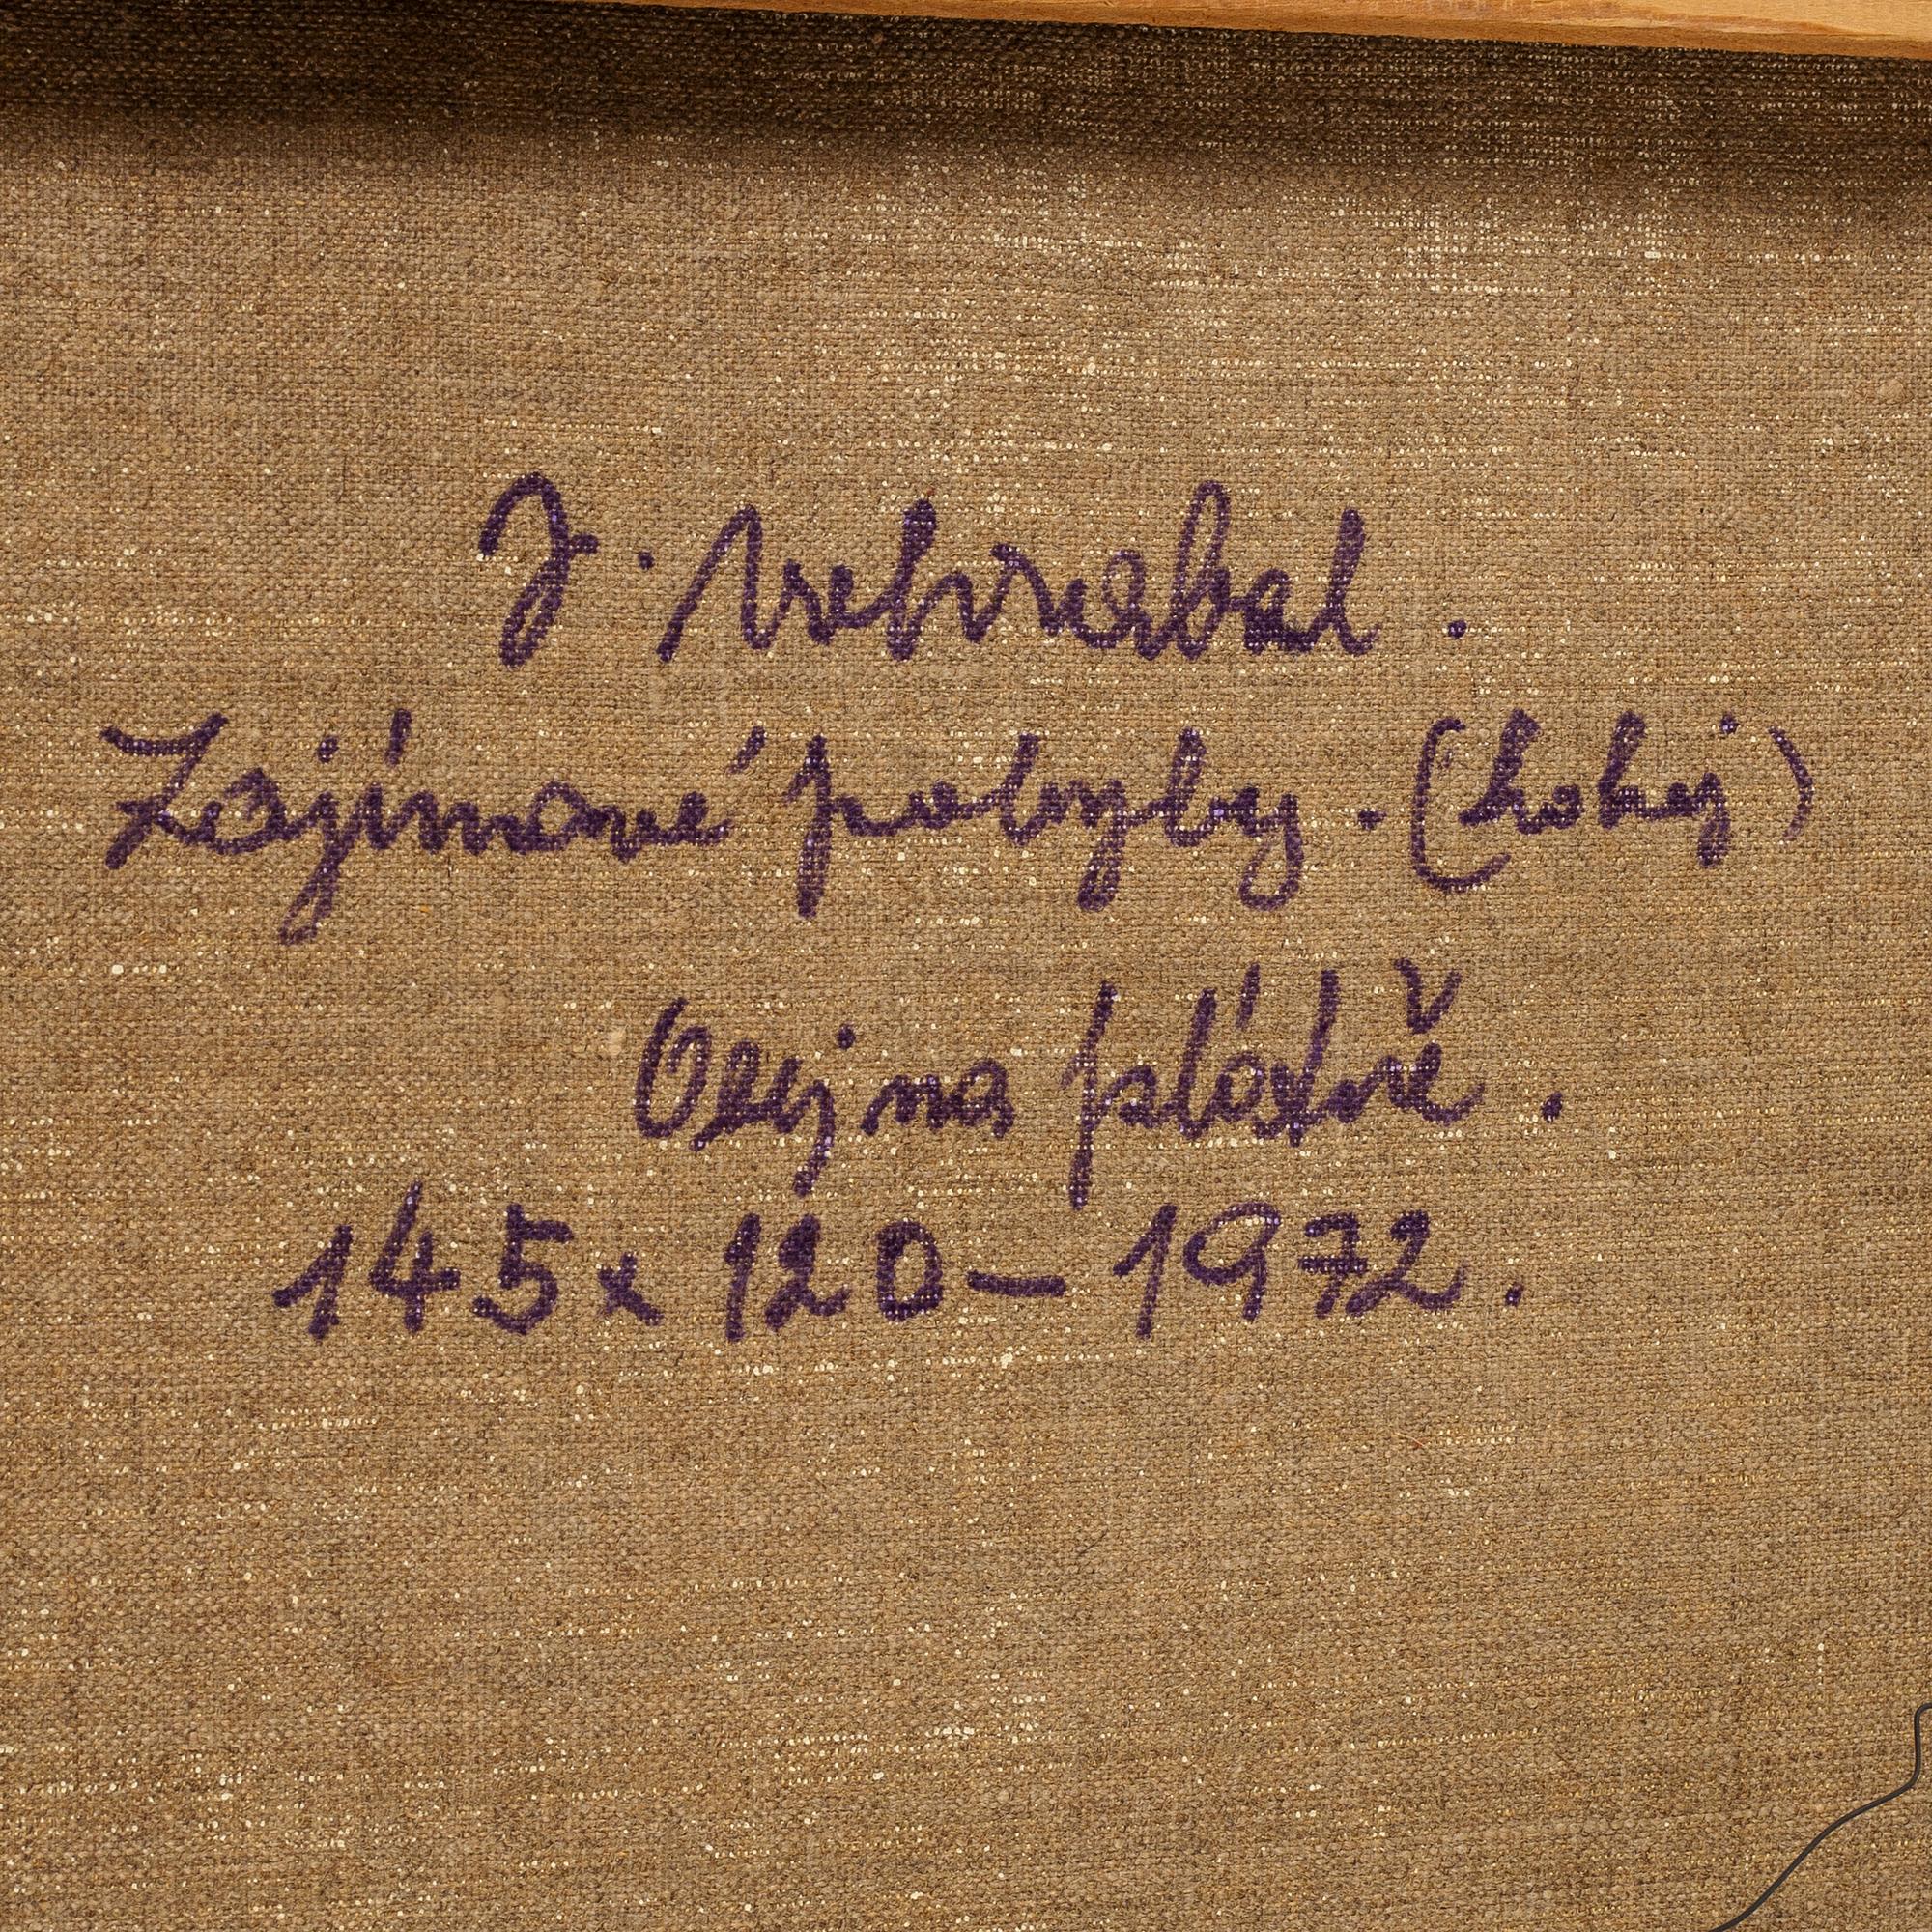 J.
Zajímavé pohyby. (hokej)
Olej na plátně.
145 x 120 — 1972.